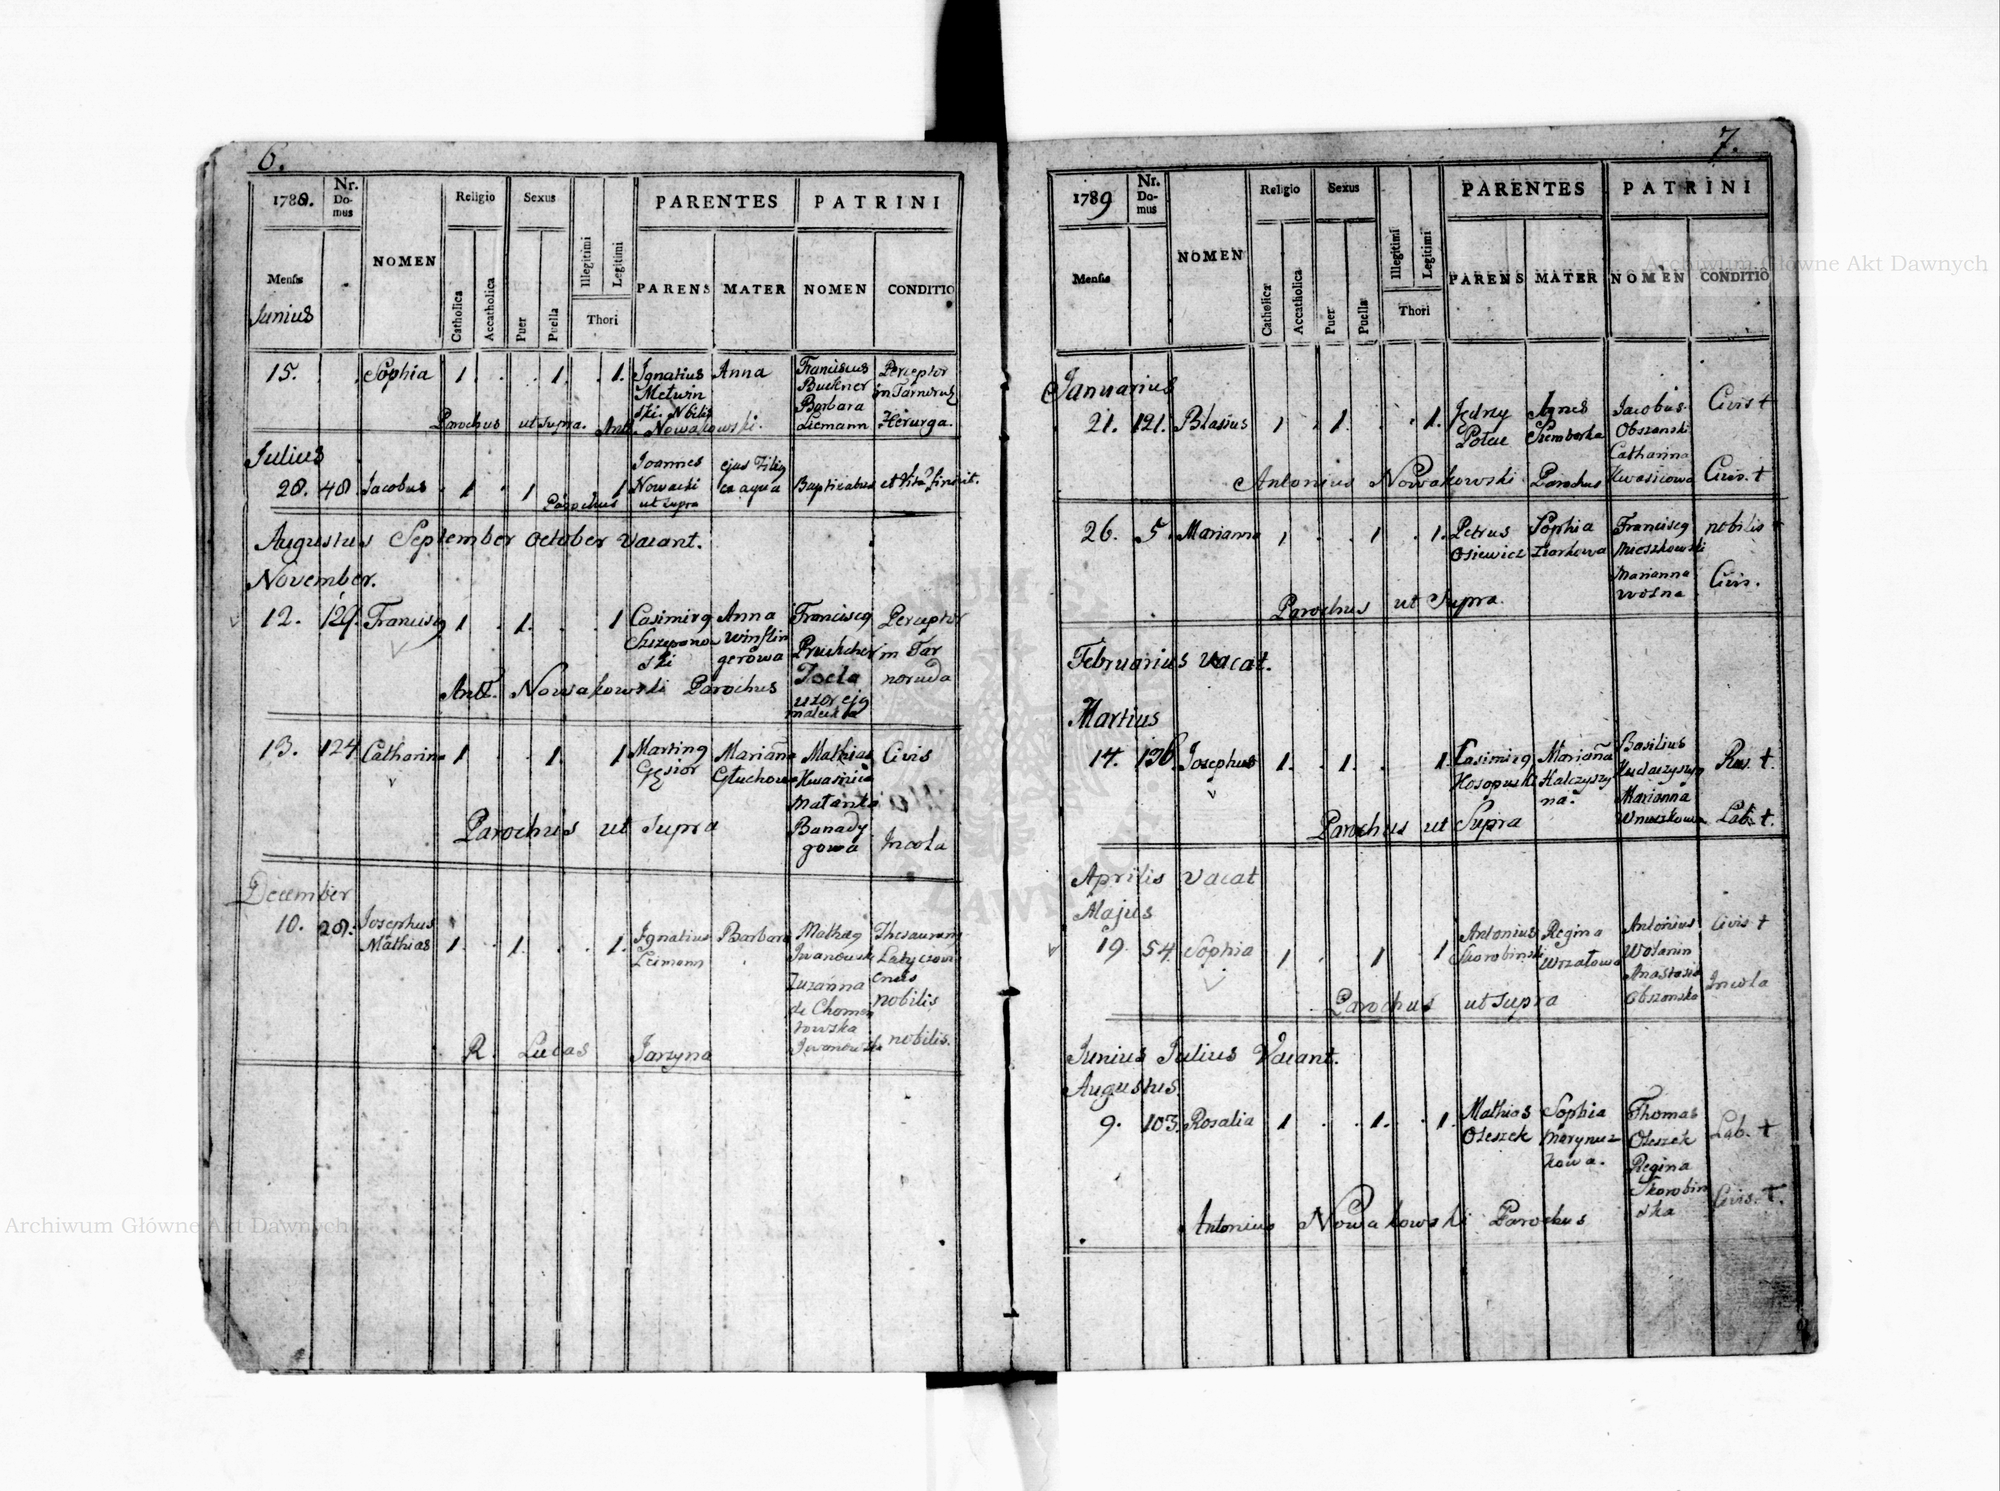 6.
1788. Nr. Domus NOMEN Religio Sexus PARENTES PATRINI
Mensis Catholica Accatholica Puer Puella Illegitimi Legitimi Thori PARENS MATER NOMEN CONDITIO
Junius
15. Sophia 1 . . 1. . 1. Ignatius Anna Franciscus Perceptor
Buckner in Tarnorud
Barbara
Nobilis Liemann Hirurga.
Parochus ut supra. Ant. Nowakowski.
Julius
28. 48 Jacobus . 1 . 1 1 Joannes ejus Filig
Nowacki ex aqua Baptisatus et Vita finivit.
Parochus ut supra
Augustus September October Vacant.
November.
12. 129. Franciscg 1 . 1. . . 1 Casimirg Anna Franciscg Perceptor
Szczepano winflin in Tar
ski gerowa Tecla noruda
uxor ejg
Ant. Nowakowski Parochus
13. 124 Catharina 1 . . 1. 1 Marting Marianna Mathias Civis
Gęsior Głuchowa Kwasnica
Banady
gowa Incola
Parochus ut supra
December
10. 28. Josephus
Mathias 1. . 1. . . 1. Ignatius Barbara Mathag Thesaurarig
Leimann Iwanowski Latyczow
Zuzanna ensis
de Chomen nobilis
towska
Iwanowska nobilis.
R. Lucas Jarzyna
7.
1789 Nr. Domus NOMEN Religio Sexus PARENTES PATRINI
Mensis Catholica Accatholica Puer Puella Illegitimi Legitimi Thori PARENS MATER NOMEN CONDITIO
Januarius
21. 121. Blasius 1 . 1. . . 1. Jędrzy Agnes Jacobus Civis +
Potuc Szemborka Obszanski
Catharina
Kwasicowa Civis. +
Antonius Nowakowski Parochus
26. 5. Marianna 1 . . 1 . 1. Petrus Sophia Franciscg nobilis +
Osiewicz Ziorkowa Mieszkowski
Marianna Civis.
Wosna
Parochus ut Supra.
Februarius vacat.
Martius
14. 136. Josephus 1. . 1. . 1. Casimirg Marianna Basilius Rus. +
Hosopuski Halczyszy Kudaczyszyn
na. Marianna
Wnuszkowa Lab. +
Parochus ut Supra
Aprilis vacat
Majus
19. 54. Sophia 1 . . 1 . 1 Antonius Regina Antonius Civis +
Skorobinski Wrzatowa Wolanin
Anastasia Incola
Obszanska
Parochus ut supra
Junius Julius Vacant.
Augustus.
9. 103. Rosalia 1 . . 1. . 1. Mathias Sophia Thomas
Oleszek Marynucz Oleszek Lab. +
kowa. Regina
Skorobin
ska Civis. +
Antonius Nowakowski Parochus
Archiwum Główne Akt Dawnych
Archiwum Główne Akt Dawnych